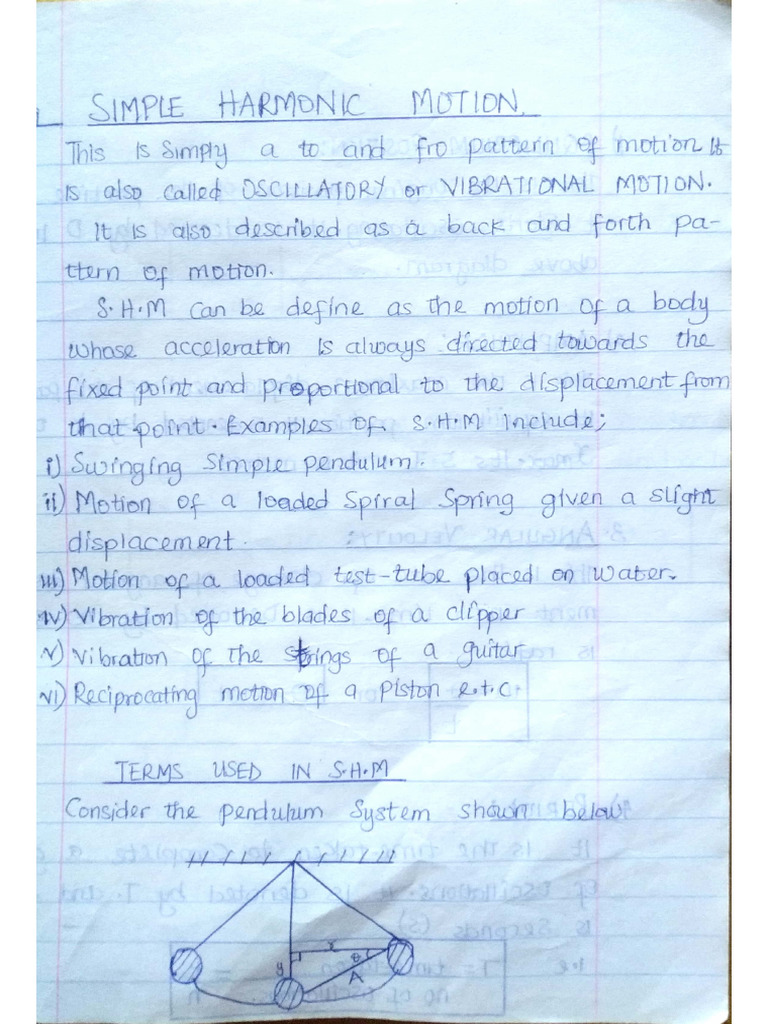 SIMPLE HARMONIC MOTION.
This is simply a to and fro pattern of motion. It
is also called OSCILLATORY or VIBRATIONAL MOTION.
It is also described as a back and forth pa-
ttern of motion.
S.H.M can be define as the motion of a body
whose acceleration is always directed towards the
fixed point and proportional to the displacement from
that point. Examples of S.H.M include;
i) Swinging simple pendulum.
ii) Motion of a loaded spiral spring given a slight
displacement.
iii) Motion of a loaded test-tube placed on water.
iv) Vibration of the blades of a clipper
v) Vibration of the strings of a guitar
vi) Reciprocating motion of a piston e.t.c.
TERMS USED IN S.H.M
Consider the pendulum system shown below
x
θ
y
A